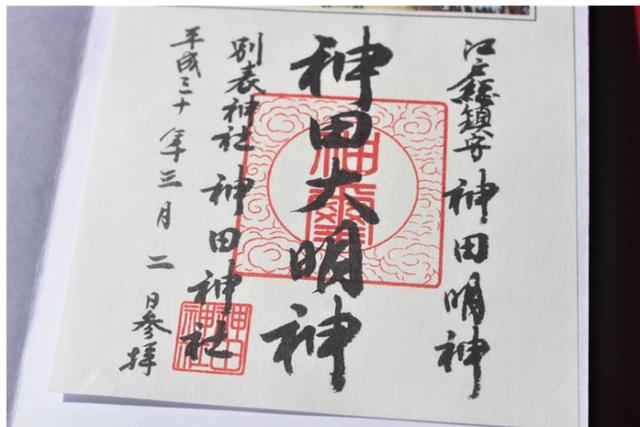 江戸総鎮守 神田明神
神田大明神
別表神社 神田神社
平成三十年三月二日参拝
神田神社